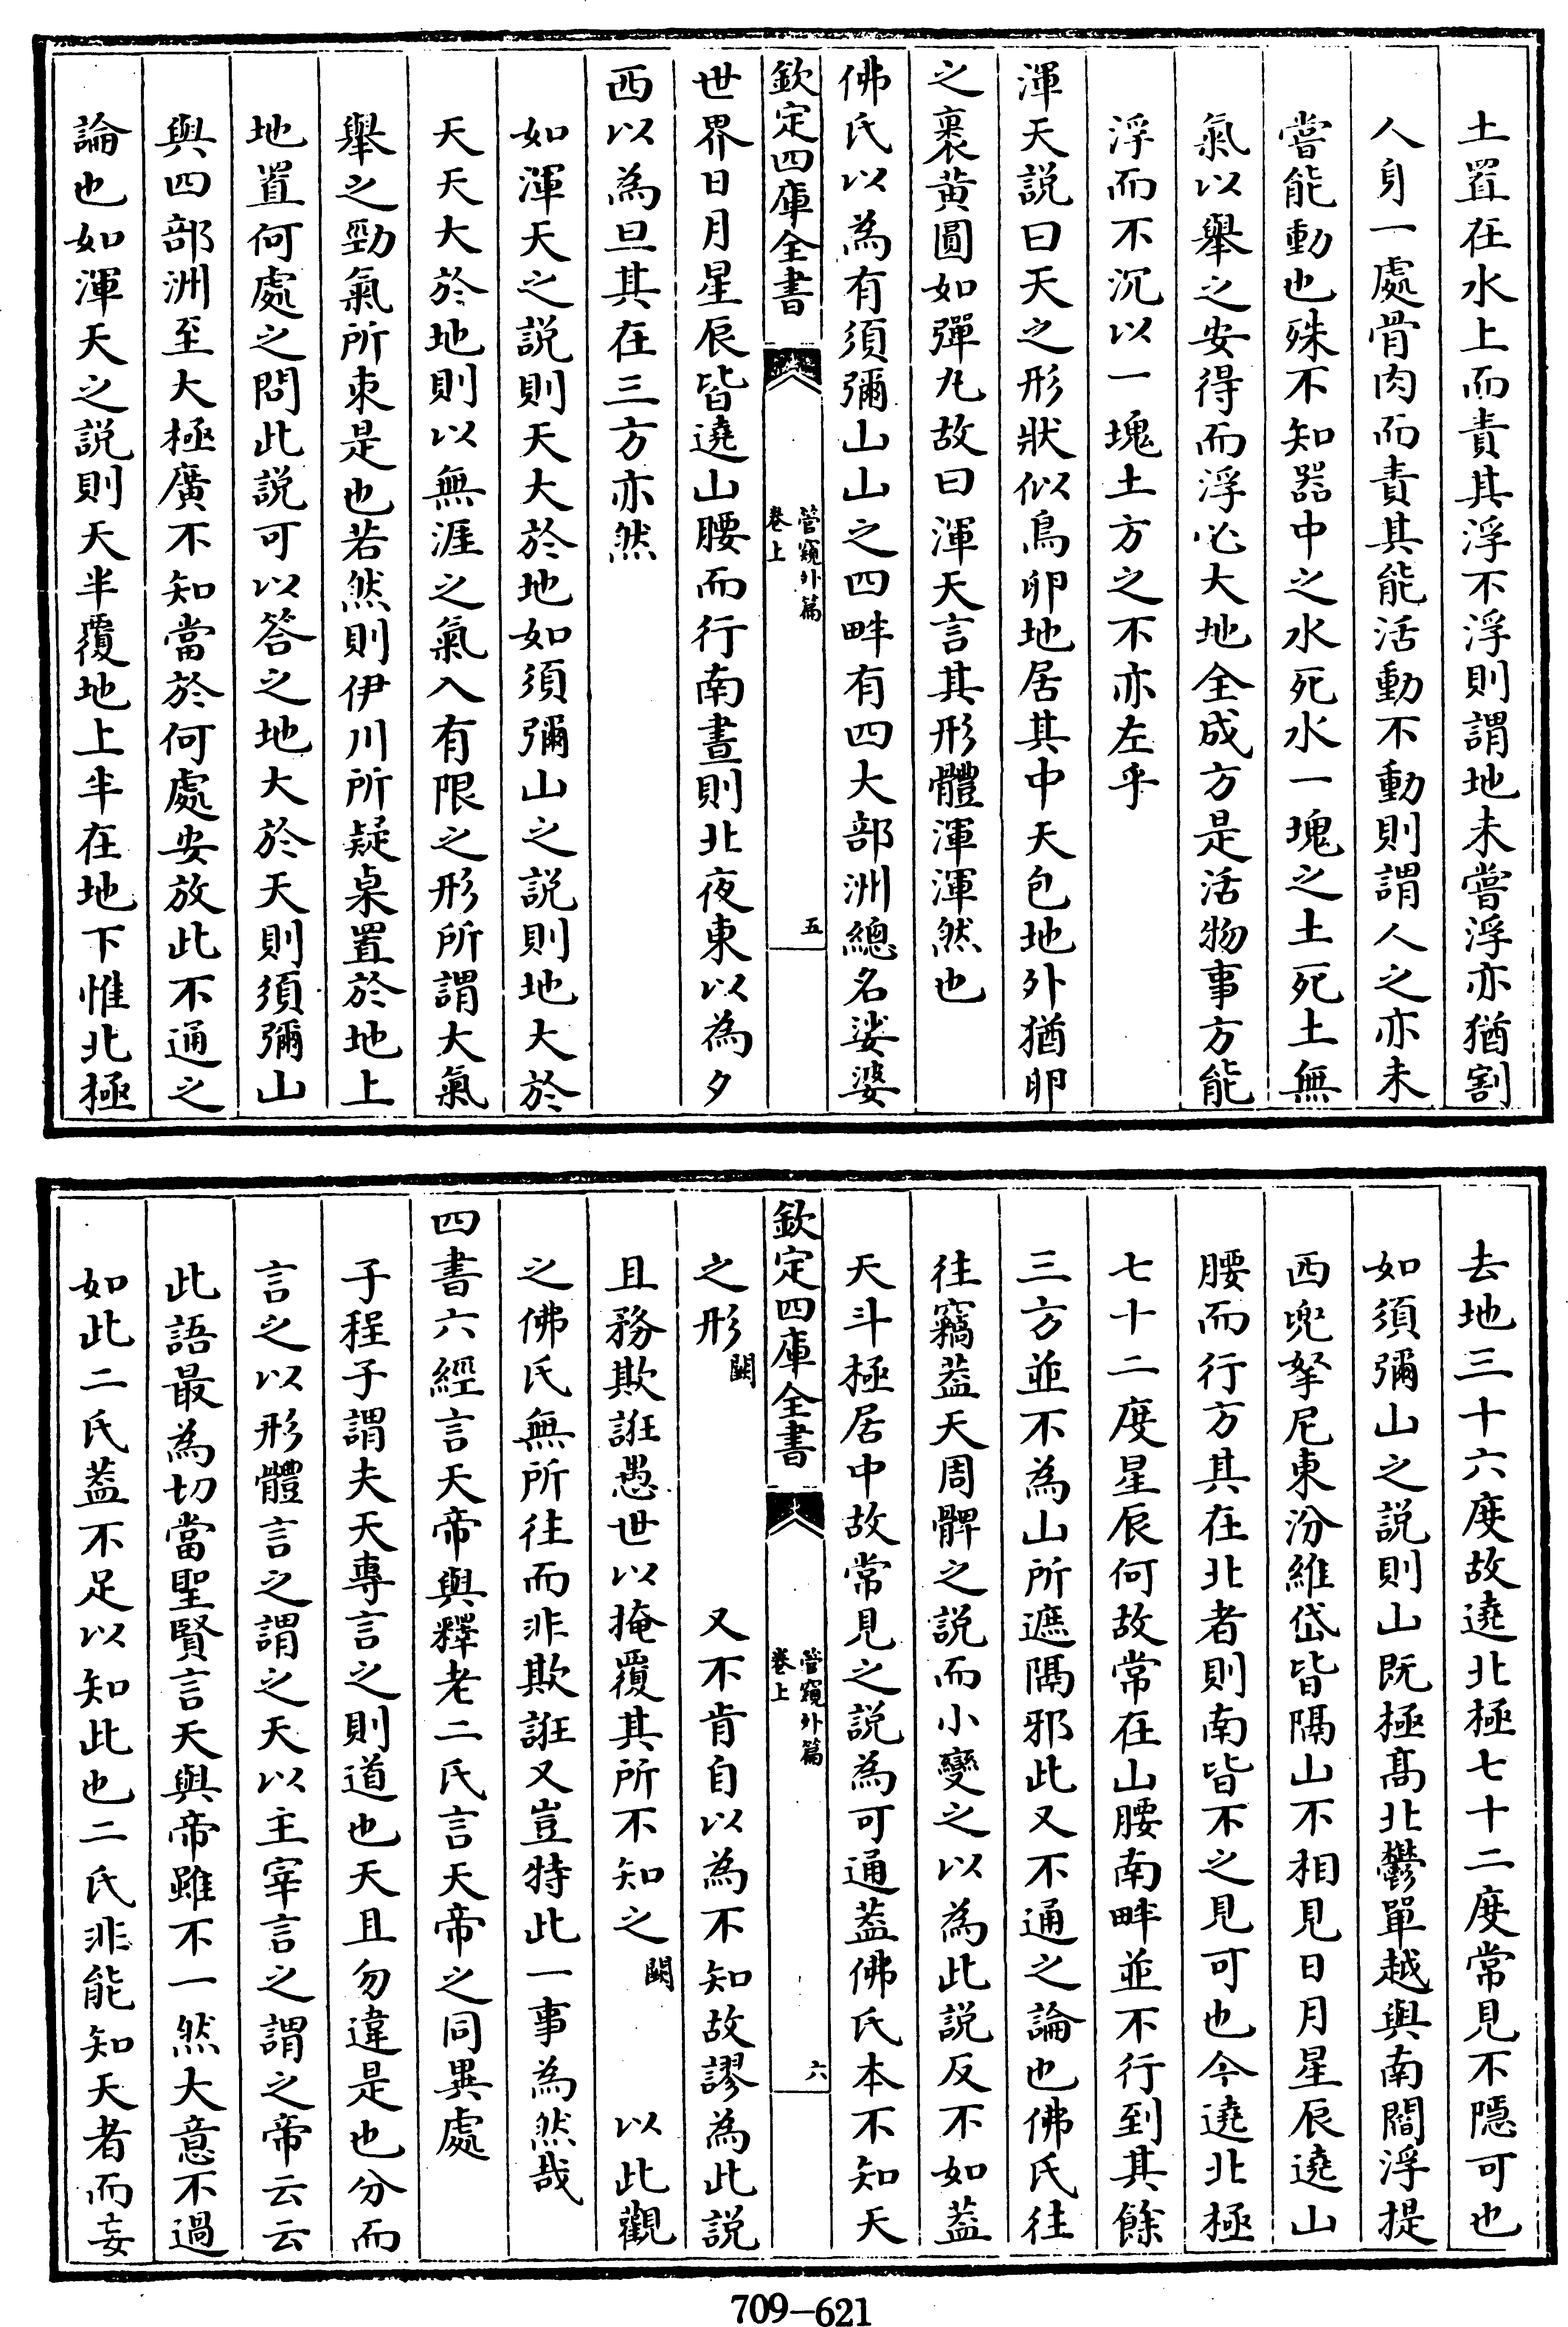 土置在水上而責其浮不浮則謂地未嘗浮亦猶割
人身一處骨肉而責其能活動不動則謂人之亦未
嘗能動也殊不知器中之水死水一塊之土死土無
氣以舉之安得而浮必大地全成方是活物事方能
浮而不沉以一塊土方之不亦左乎
渾天説曰天之形狀似鳥卵地居其中天包地外猶卵
之裹黄圓如彈丸故曰渾天言其形體渾渾然也
佛氏以為有須彌山山之四畔有四大部洲總名娑婆
欽定四庫全書
管窺外篇
卷上
五
世界日月星辰皆遶山腰而行南晝則北夜東以為夕
西以為旦其在三方亦然
如渾天之説則天大於地如須彌山之説則地大於
天天大於地則以無涯之氣入有限之形所謂大氣
舉之勁氣所束是也若然則伊川所疑桌置於地上
地置何處之問此説可以答之地大於天則須彌山
與四部洲至大極廣不知當於何處安放此不通之
論也如渾天之説則天半覆地上半在地下惟北極
去地三十六度故遶北極七十二度常見不隱可也
如須彌山之説則山既極髙北鬱單越與南閻浮提
西兜孥尼東汾維岱皆隔山不相見日月星辰遶山
腰而行方其在北者則南皆不之見可也今遶北極
七十二度星辰何故常在山腰南畔並不行到其餘
三方並不為山所遮隔邪此又不通之論也佛氏往
往竊葢天周髀之説而小變之以為此説反不如葢
天斗極居中故常見之説為可通葢佛氏本不知天
欽定四庫全書
管窺外篇
卷上
六
之形闕又不肯自以為不知故謬為此説
且務欺誑愚世以掩覆其所不知之闕以此觀
之佛氏無所往而非欺誑又豈特此一事為然哉
四書六經言天帝與釋老二氏言天帝之同異處
子程子謂夫天専言之則道也天且勿違是也分而
言之以形體言之謂之天以主宰言之謂之帝云云
此語最為切當聖賢言天與帝雖不一然大意不過
如此二氏葢不足以知此也二氏非能知天者而妄
709-621